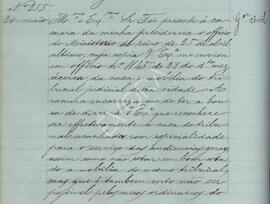 Nº 255
20 maio Illmo e Exmo Sr. Foi presente á ca- Gor civil
mara da minha presidencia o officio
do Ministerio do reino de 25 de abril
ultimo, cuja copia V. Exª me enviou
em officio nº 1145 de 28 do dº mez
ácerca da casa e mobilia do tri-
bunal judicial desta cidade. A
camara encarrega-me de ter a hon-
ra de dizer a V. Exª que reconhece
ser effectivamente a casa do tribu-
nal acanhada com especialidade
para o serviço das audiencias geraes,
assim como não estar em bom esta-
do a mobilia do mesmo tribunal;
mas que é tambem certo não ser
possivel pelos meios ordinarios do